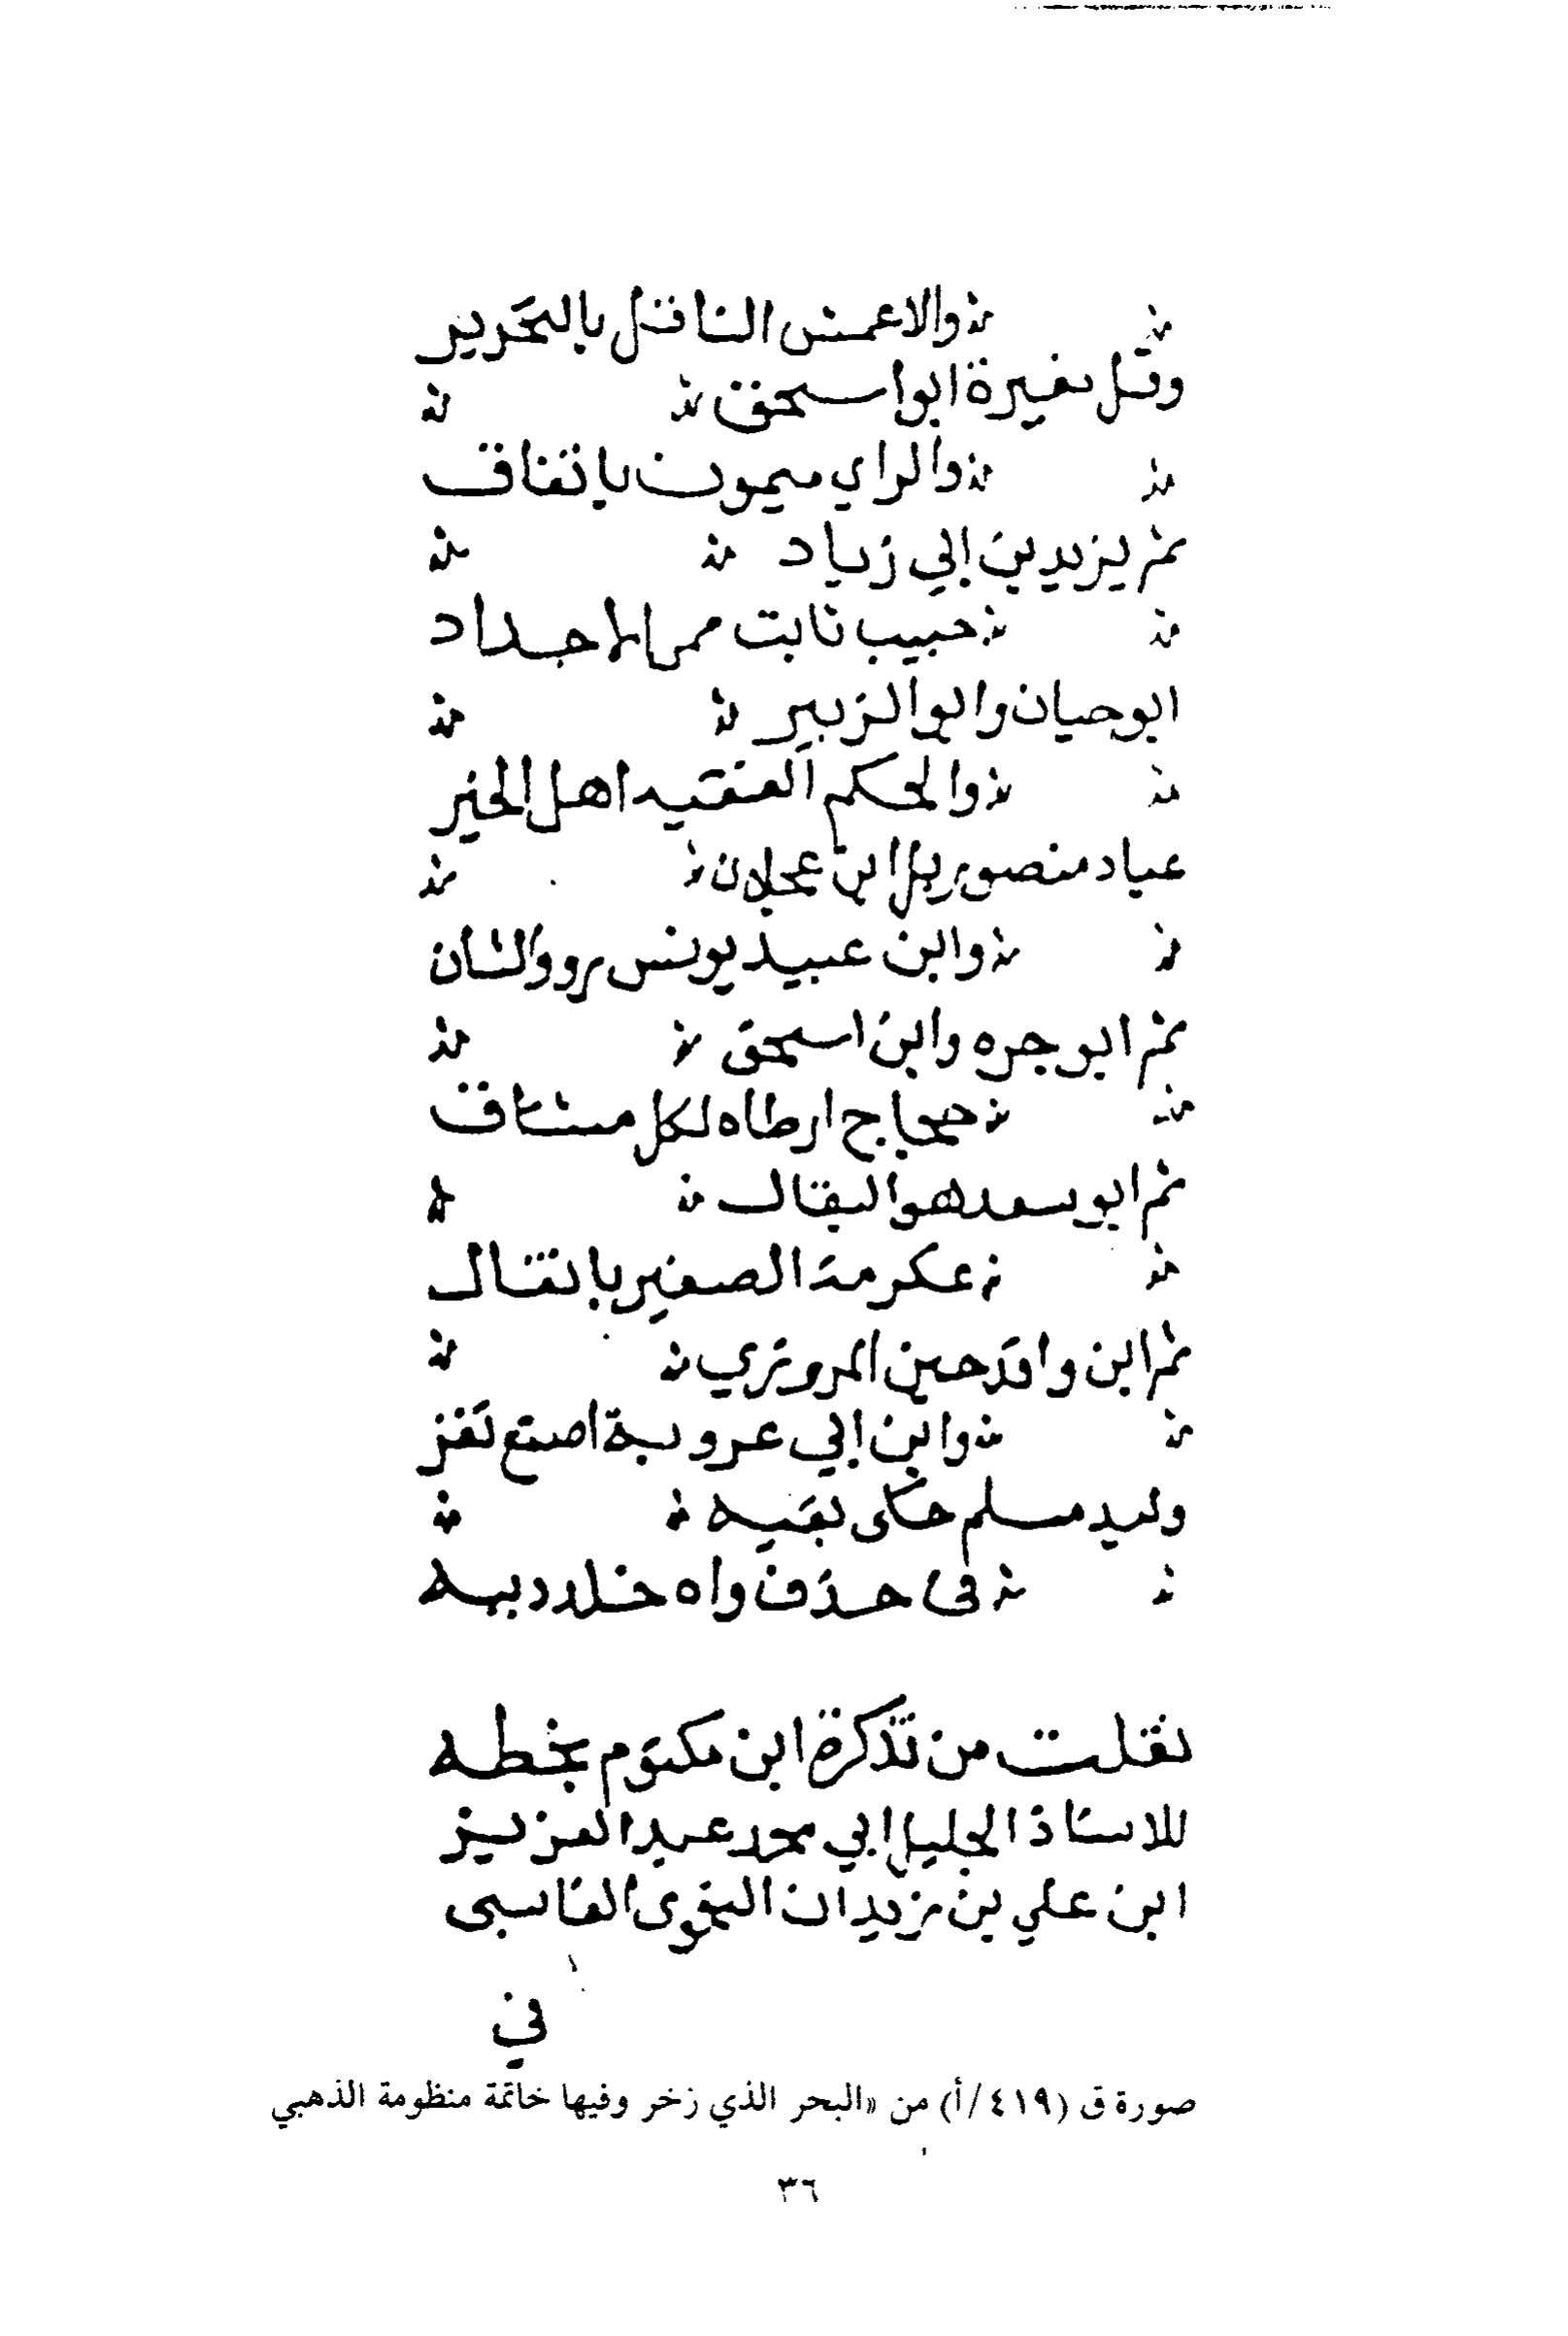 والاعمش الناقل بالتحرير
وقل مغيرة ابوا سحق
والراي ميمون باتفاق
ثم يزيد بن ابي زياد
حبيب ثابت الاجداد
ابو حيان وابو الزبير
والحكم الفقيه اهل الخير
عباد منصور بل ابن عجلان
وابن عبيد يونس الشان
ثم ابو جره وابن اسحق
حجاج ارطاه لكل مشتاق
ثم ابو سعد هو البقال
عكرمة الصغير
ثم ابن واقد حين المروزي
وابن ابي عروبة اصنع تفز
وليد مسلم حكى بقيه
فى حذف واه
نقلت من تذكرة ابن مكتوم بخطه
للاستاذ الجليل ابي محمد عبد العزيز
ابن علي بن زيدان النحوى الفاسى
في
صورة ق (٤١٩/أ) من «البحر الذي زخر وفيها خاتمة منظومة الذهبي
٣٦